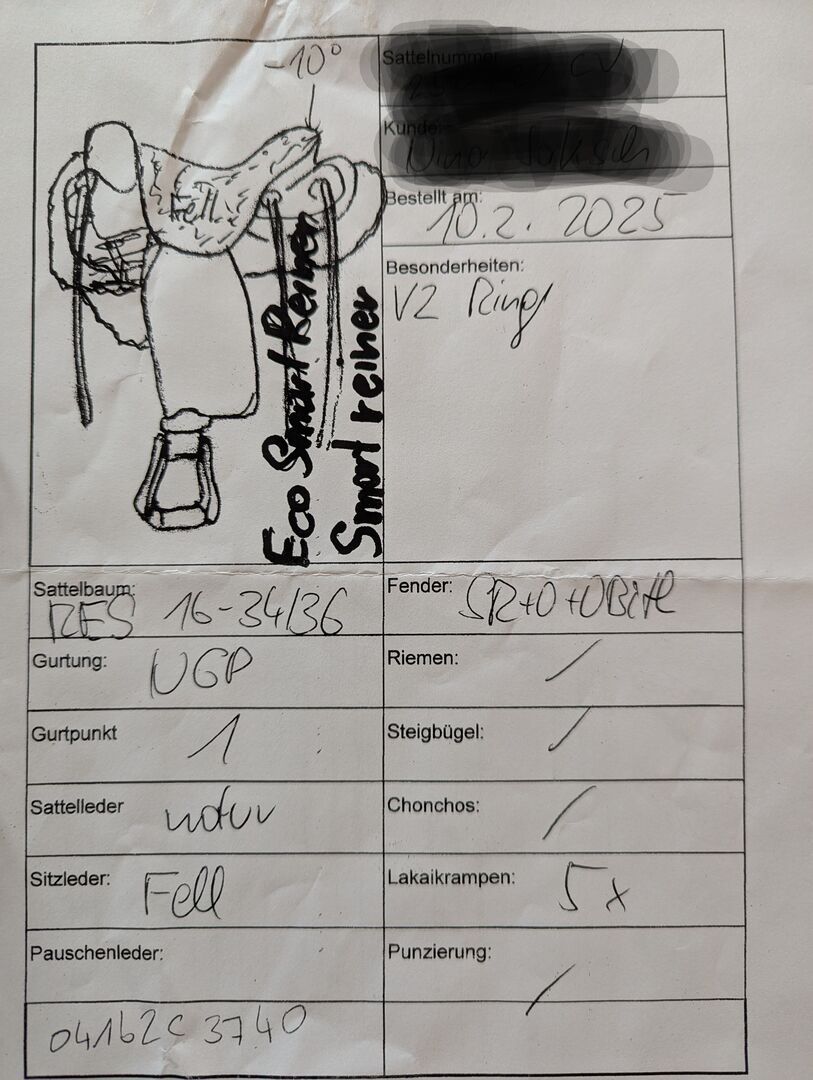 -10°
Fell
Eco Smart Reiner
Smart reiner
Sattelnummer
Kunde:
Bestellt am:
10.2. 2025
Besonderheiten:
VZ Ring
Sattelbaum:
RES 16-34/36
Fender:
Gurtung:
NGP
Riemen:
/
Gurtpunkt
1
Steigbügel:
/
Sattelleder
natur
Chonchos:
/
Sitzleder:
Fell
Lakaikrampen:
5x
Pauschenleder:
Punzierung:
/
04162C3740